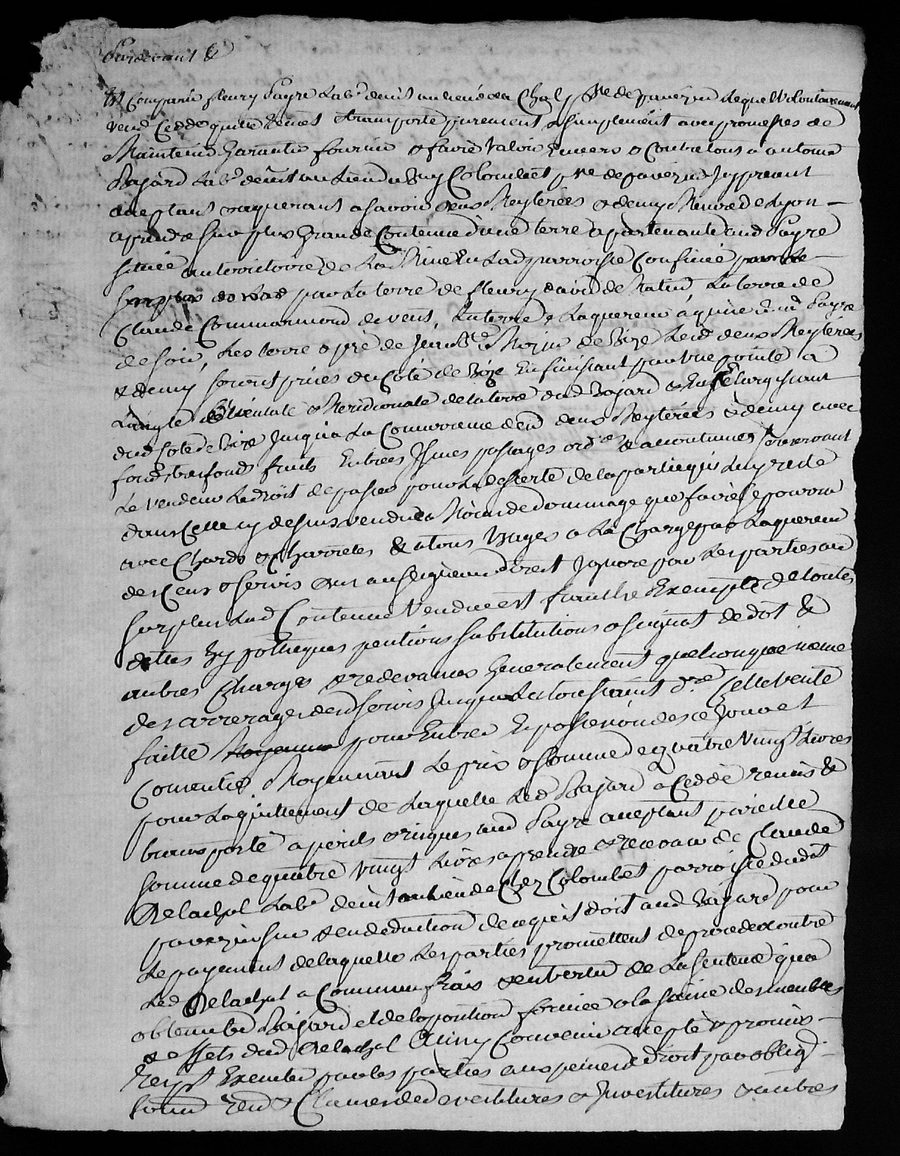 Pardevant &
Est Comparu fleury payre Lab.r demt au lieu de La Chal psse de paverzin Lequel Volontairement
vend Cedde quitte Remet & transporte purement & simplement avec promesses de
Maintenir Garantir fournir & faire Valoir Envers & Contre tous a antoine
Bajard Lab.r demt au Lieu du Puy Colombet psse de paverzin Jcy present
acceptant & aquerant a savoir deux Meyterées & demy Mesure de Lyon
a prendre sur plus Grande Contenue d'une terre apartenante aud payre
Située au territoire de La Rine En Lad parroisse Confinée
par La terre de fleury david de Matin La terre de
Claude Commarmond de vent, La terre a Laquereur a quire & md payre
de soir, Les terre & pré de Jean Morin de Bize Lesd deux Meyterées
& demy seront prises du Coté de Bize En finissant par une pointe a
Langle orientale & Meridionale de la terre dud Bajard & En Elargissant
dud Coté de Bize Jusqua La Concurrence desd deux Meyterées & demy avec
fonds tresfonds fruits Entrées Jssues passages ord.res & accoutumés se reservant
Le vendeur Le droit de passer pour La desserte de la partie qui Luy reste
dans Celle cy dessus vendue a Moins de dommage que faire se pourra
avec Chards & Charretes & a tous Usages a La Charge par Laquereur
des Cens & Servis dus au seigneur direct Jgnoré par Les parties au
surplus Lad Contenue Vendue est franche Exempte de toutes
dettes Hypotheques pentions substitutions assignat de dot &
autres Charges & redevances Generalement quelconques meme
des arrerages desd servis Jusqua La toussaint d.re Cette vente
faitte pour Entrer En possession des ce Jour et
Consentie Moyennant Le prix & somme de quatre Vingt Livres
pour Laquittement de Laquelle Led Bajard a Ceddé remis &
transporté a perils & risques aud payre acceptant pareille
somme de quatre Vingt Livres a prendre & recevoir de Claude
Delachal Lab.r demt au lieu de Chez Colombet parroisse dudit
paverzin sur & en deduction de ce qu'il doit aud Bajard pour
Le payement de laquelle Les parties promettent de proceder contre
Led Delachal a Communs frais & en vertu de La sentence qu'a
obtenu led Bajard et de lopposition formée a la saisie des meubles
& effets dud Delachal Ainsy Convenu accepté & promis
respt Executer par les parties aux peines de droit par oblig.
soum renon & Clauses de devestitures & Jnvestitures & autres